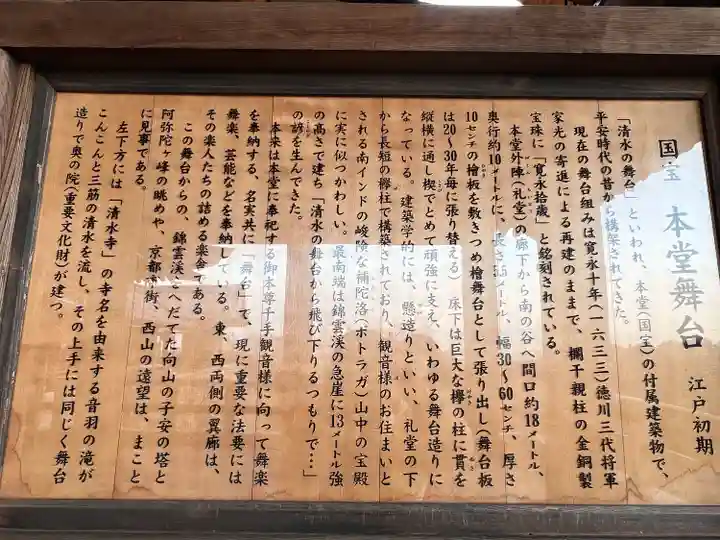 国宝 本堂舞台 江戸初期
「清水の舞台」といわれ、本堂(国宝)の付属建築物で、
平安時代の昔から構築されてきた。
現在の舞台組みは寛永十年(一六三三)徳川三代将軍
家光の寄進による再建のままで、欄干親柱の金銅製
宝珠に「寛永拾歳」と銘刻されている。
本堂外陣(礼堂)の廊下から南の谷へ間口約18メートル、
奥行約10メートルに、長さ5.5メートル、幅30〜60センチ、厚さ
10センチの檜板を敷きつめ檜舞台として張り出し(舞台板
は20〜30年毎に張り替える)床下は巨大な欅の柱に貫を
縦横に通し楔でとめて頑強に支え、いわゆる舞台造りに
なっている。建築学的には、懸造りといい、礼堂の下
から長短の欅柱で構築されており、観音様のお住まいと
される南インドの峻険な補陀洛(ポトラガ)山中の宝殿
に実に似つかわしい。最南端は錦雲渓の急崖に13メートル強
の高さで建ち「清水の舞台から飛び下りるつもりで…」
の諺を生んできた。
本来は本堂に奉祀する御本尊千手観音様に向って舞楽
を奉納する、名実共に「舞台」で、現に重要な法要には
舞楽、芸能などを奉納している。東、西両側の翼廊は、
その楽人たちの詰める楽舎である。
この舞台からの、錦雲渓をへだてた向山の子安の塔と
阿弥陀ヶ峰の眺めや、京都市街、西山の遠望は、まこと
に見事である。
左下方には「清水寺」の寺名を由来する音羽の滝が
こんこんと三筋の清水を流し、その上手には同じく舞台
造りで奥の院(重要文化財)が建つ。